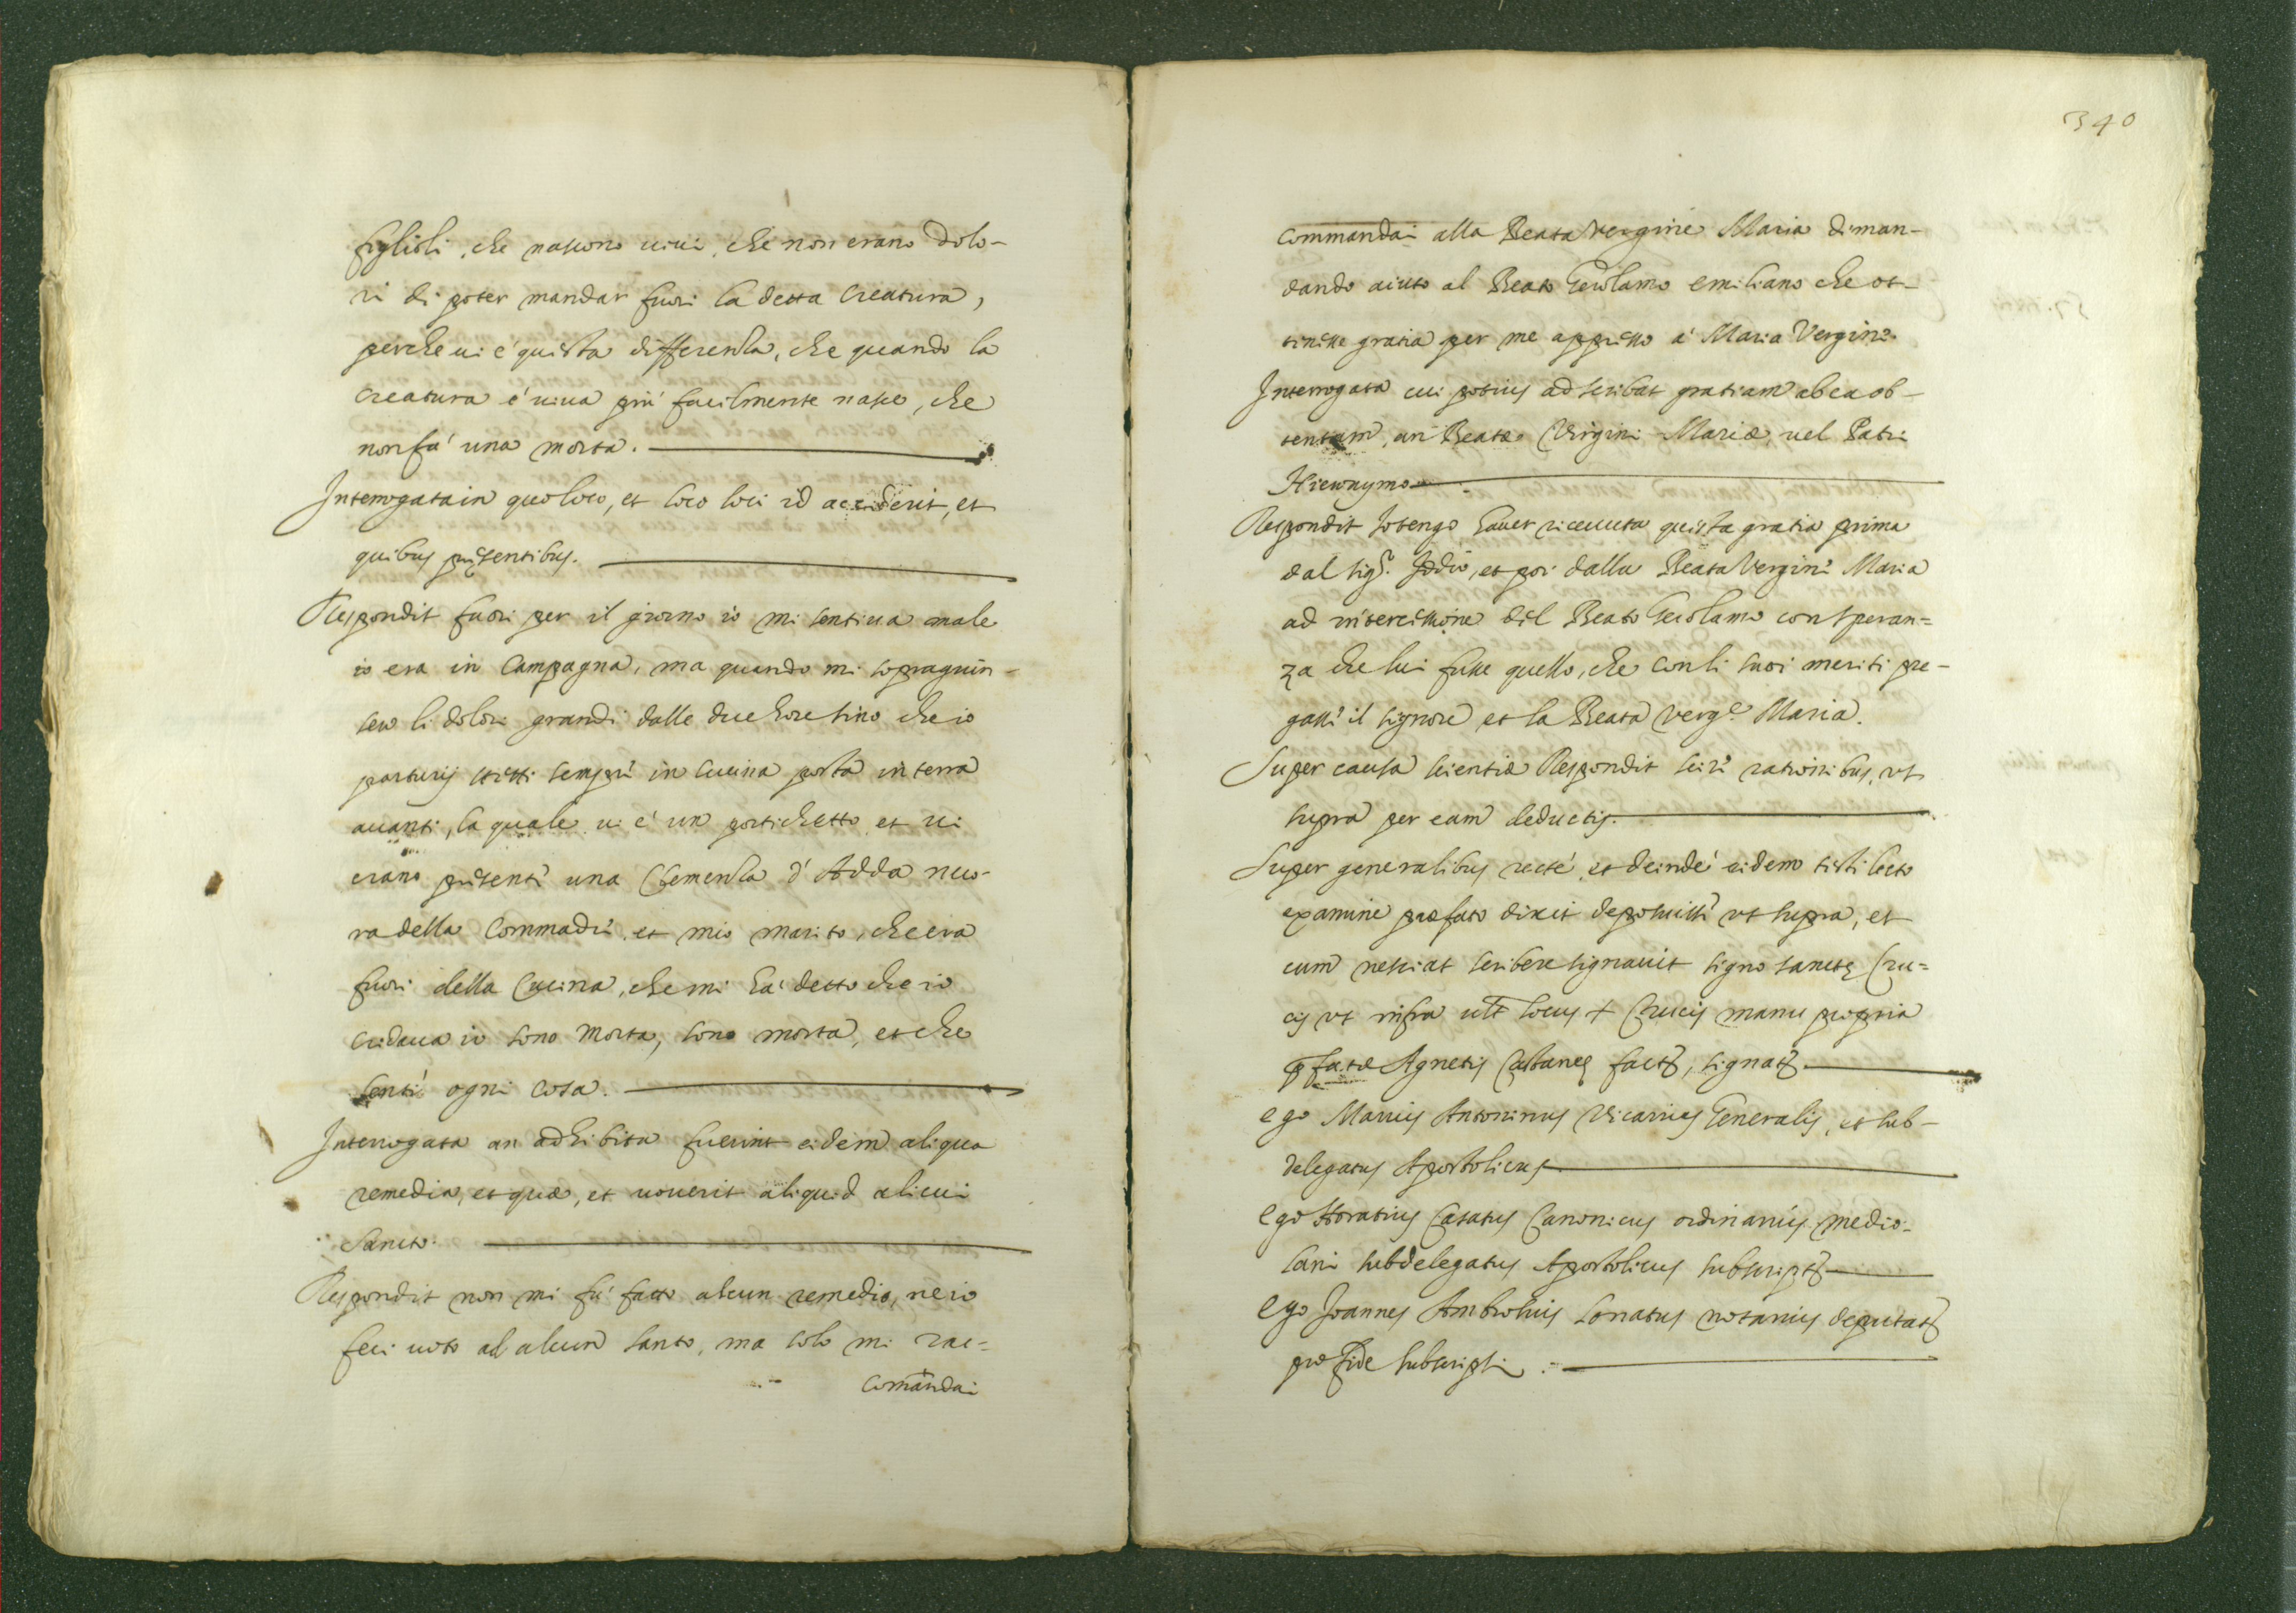 figlioli, che nascono uiui, che non erano dolo-
ri di poter mandar fuori la detta Creatura,
perche ui e' questa differenza, che quando la
Creatura e' uiua piu' facilmente nasce, che
non fa' una morta.
Interrogata in quo loco, et loco loci id acciderit, et
quibus pñtentibus.
Respondit fuori per il giorno io mi sentiua male
io era in Campagna, ma quando mi sopragiun-
sero li dolori grandi dalle due hore sino che io
parturij stetti sempre in Cucina posta in terra
auanti, la quale ui e' un portichetto, et ui
erano pñsenti una Clemenza d' Adda nuo-
ra della Commadre, et mio marito, che era
fuori della Cucina, che mi ha' detto che io
cridaua io sono morta, sono morta, et che
senti' ogni cosa.
Interrogata an adhibita fuerint eidem aliqua
remedia, et quæ, et uouerit aliquid alicui
Sancto.
Respondit non mi fu' fatto alcun remedio, ne io
feci uoto ad alcun santo, ma solo mi rac-
comãndai
340
commandai alla Beata Vergine Maria diman-
dando aiuto al Beato Gerolamo emiliano che ot-
tenesse gratia per me appresso a' Maria Vergine.
Interrogata cui potius adscribat gratiam ab ea ob-
tentam, an Beatæ Virgini Mariæ, uel Patri
Hieronymo
Respondit Io tengo hauer riceuuta questa gratia prima
dal sig.r Iddio, et poi dalla Beata Vergine Maria
ad intercessione del Beato Gerolamo con speran=
za che lui fusse quello, che con li suoi meriti pre-
gasse il signore et la Beata Verg.e Maria.
Super causa scientiæ Respondit scire rationibus, vt
supra per eam deductis.
Super generalibus recte', et deinde' eidem testi lecto
examine præfato dixit deposuisse vt supra, et
cum nesciat scribere signauit signo sanctę Cru=
cis vt infra ult locus + Crucis manu propria
pfatæ Agnetis Castaneę fact, signat
ego Marius Antoninus Vicarius Generalis, et sub-
delegatus Apostolicus
ego Horatius Casatus Canonicus ordinarius medio-
lani subdelegatus Apostolicus subscript
ego Joannes Ambrosius Sonatus notarius deputat
pro fide subscripsi.